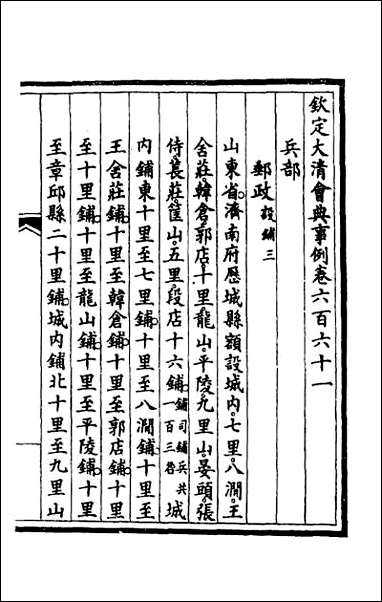 欽定大清會典事例卷六百六十一
兵部
郵政設鋪三
山東省濟南府歷城縣額設城內七里八澗王
舍莊韓倉郭店十里龍山平陵九里山晏頭張
侍長莊筐山五里段店十六鋪鋪司鋪兵共一百三名城
內鋪東十里至七里鋪十里至八澗鋪十里至
王舍莊鋪十里至韓倉鋪十里至郭店鋪十里
至十里鋪十里至龍山鋪十里至平陵鋪十里
至章邱縣二十里鋪城內鋪北十里至九里山